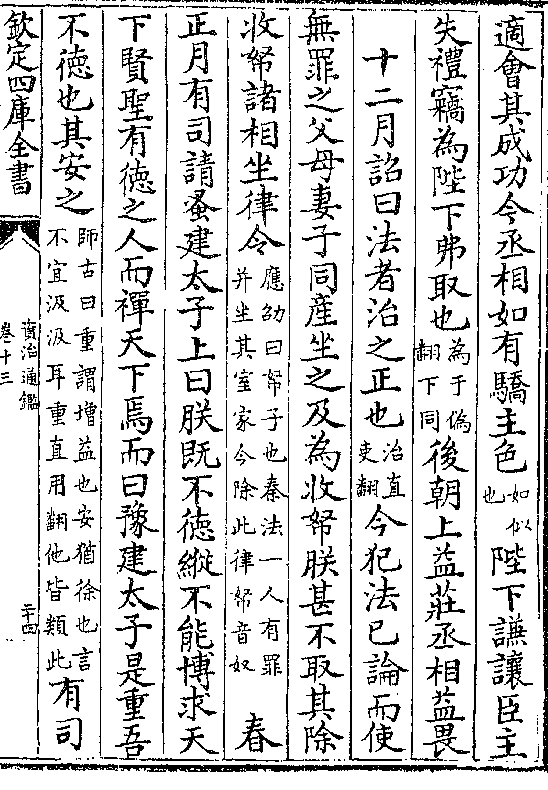 適會其成功今丞相如有驕主色如似也陛下謙讓臣主
失禮竊為陛下弗取也為于偽翻下同後朝上益莊丞相益畏
十二月詔曰法者治之正也治直吏翻今犯法已論而使
無罪之父母妻子同産坐之及為收帑朕甚不取其除
收帑諸相坐律令應劭曰帑子也秦法一人有罪并坐其室家今除此律帑音奴春
正月有司請蚤建太子上曰朕既不徳縱不能博求天
下賢聖有徳之人而禪天下焉而曰豫建太子是重吾
不徳也其安之師古曰重謂增益也安猶徐也言不宜汲汲耳重直用翻他皆類此有司
欽定四庫全書
資治通鑑
卷十三
二十四